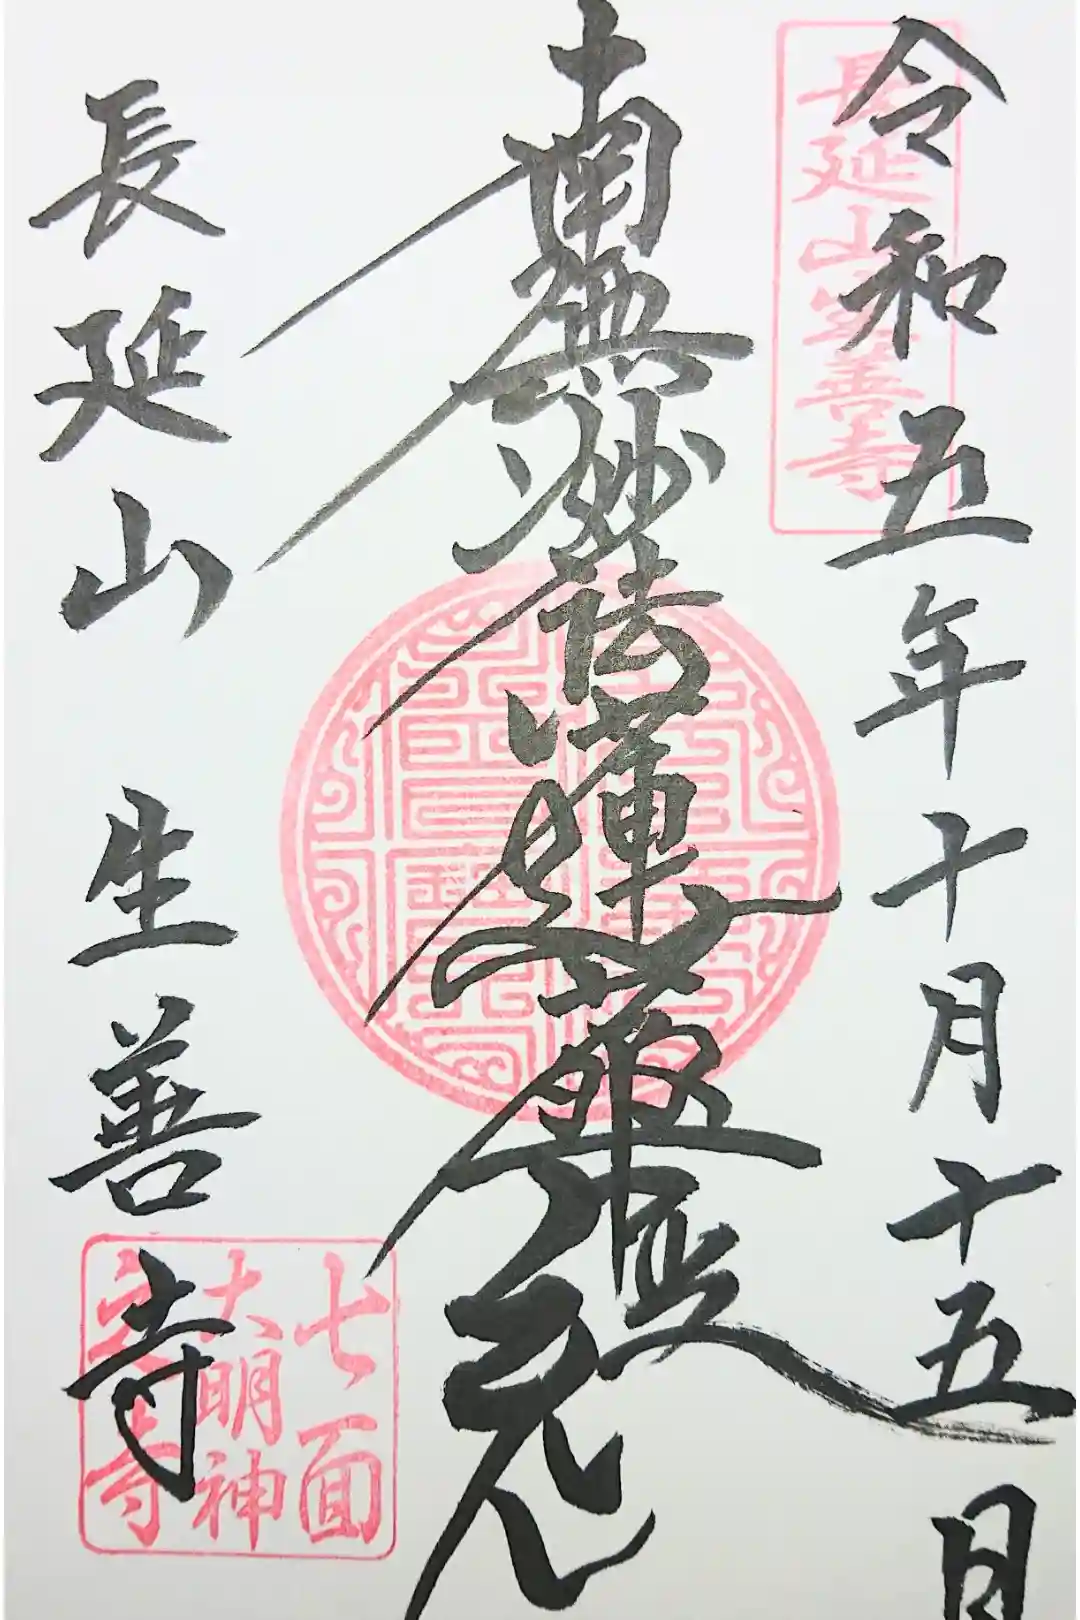 令和五年十月十五日
長延山生善寺
南無妙法蓮華経
長延山 生善寺
七面
大明神
之寺